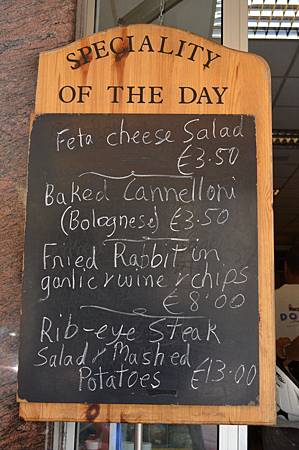 SPECIALITY
OF THE DAY
Feta cheese Salad
€3.50
Baked Cannelloni
(Bolognese) €3.50
Fried Rabbit in
garlic & wine & chips
€8.00
Rib-eye Steak
Salad & Mashed
Potatoes €13.00